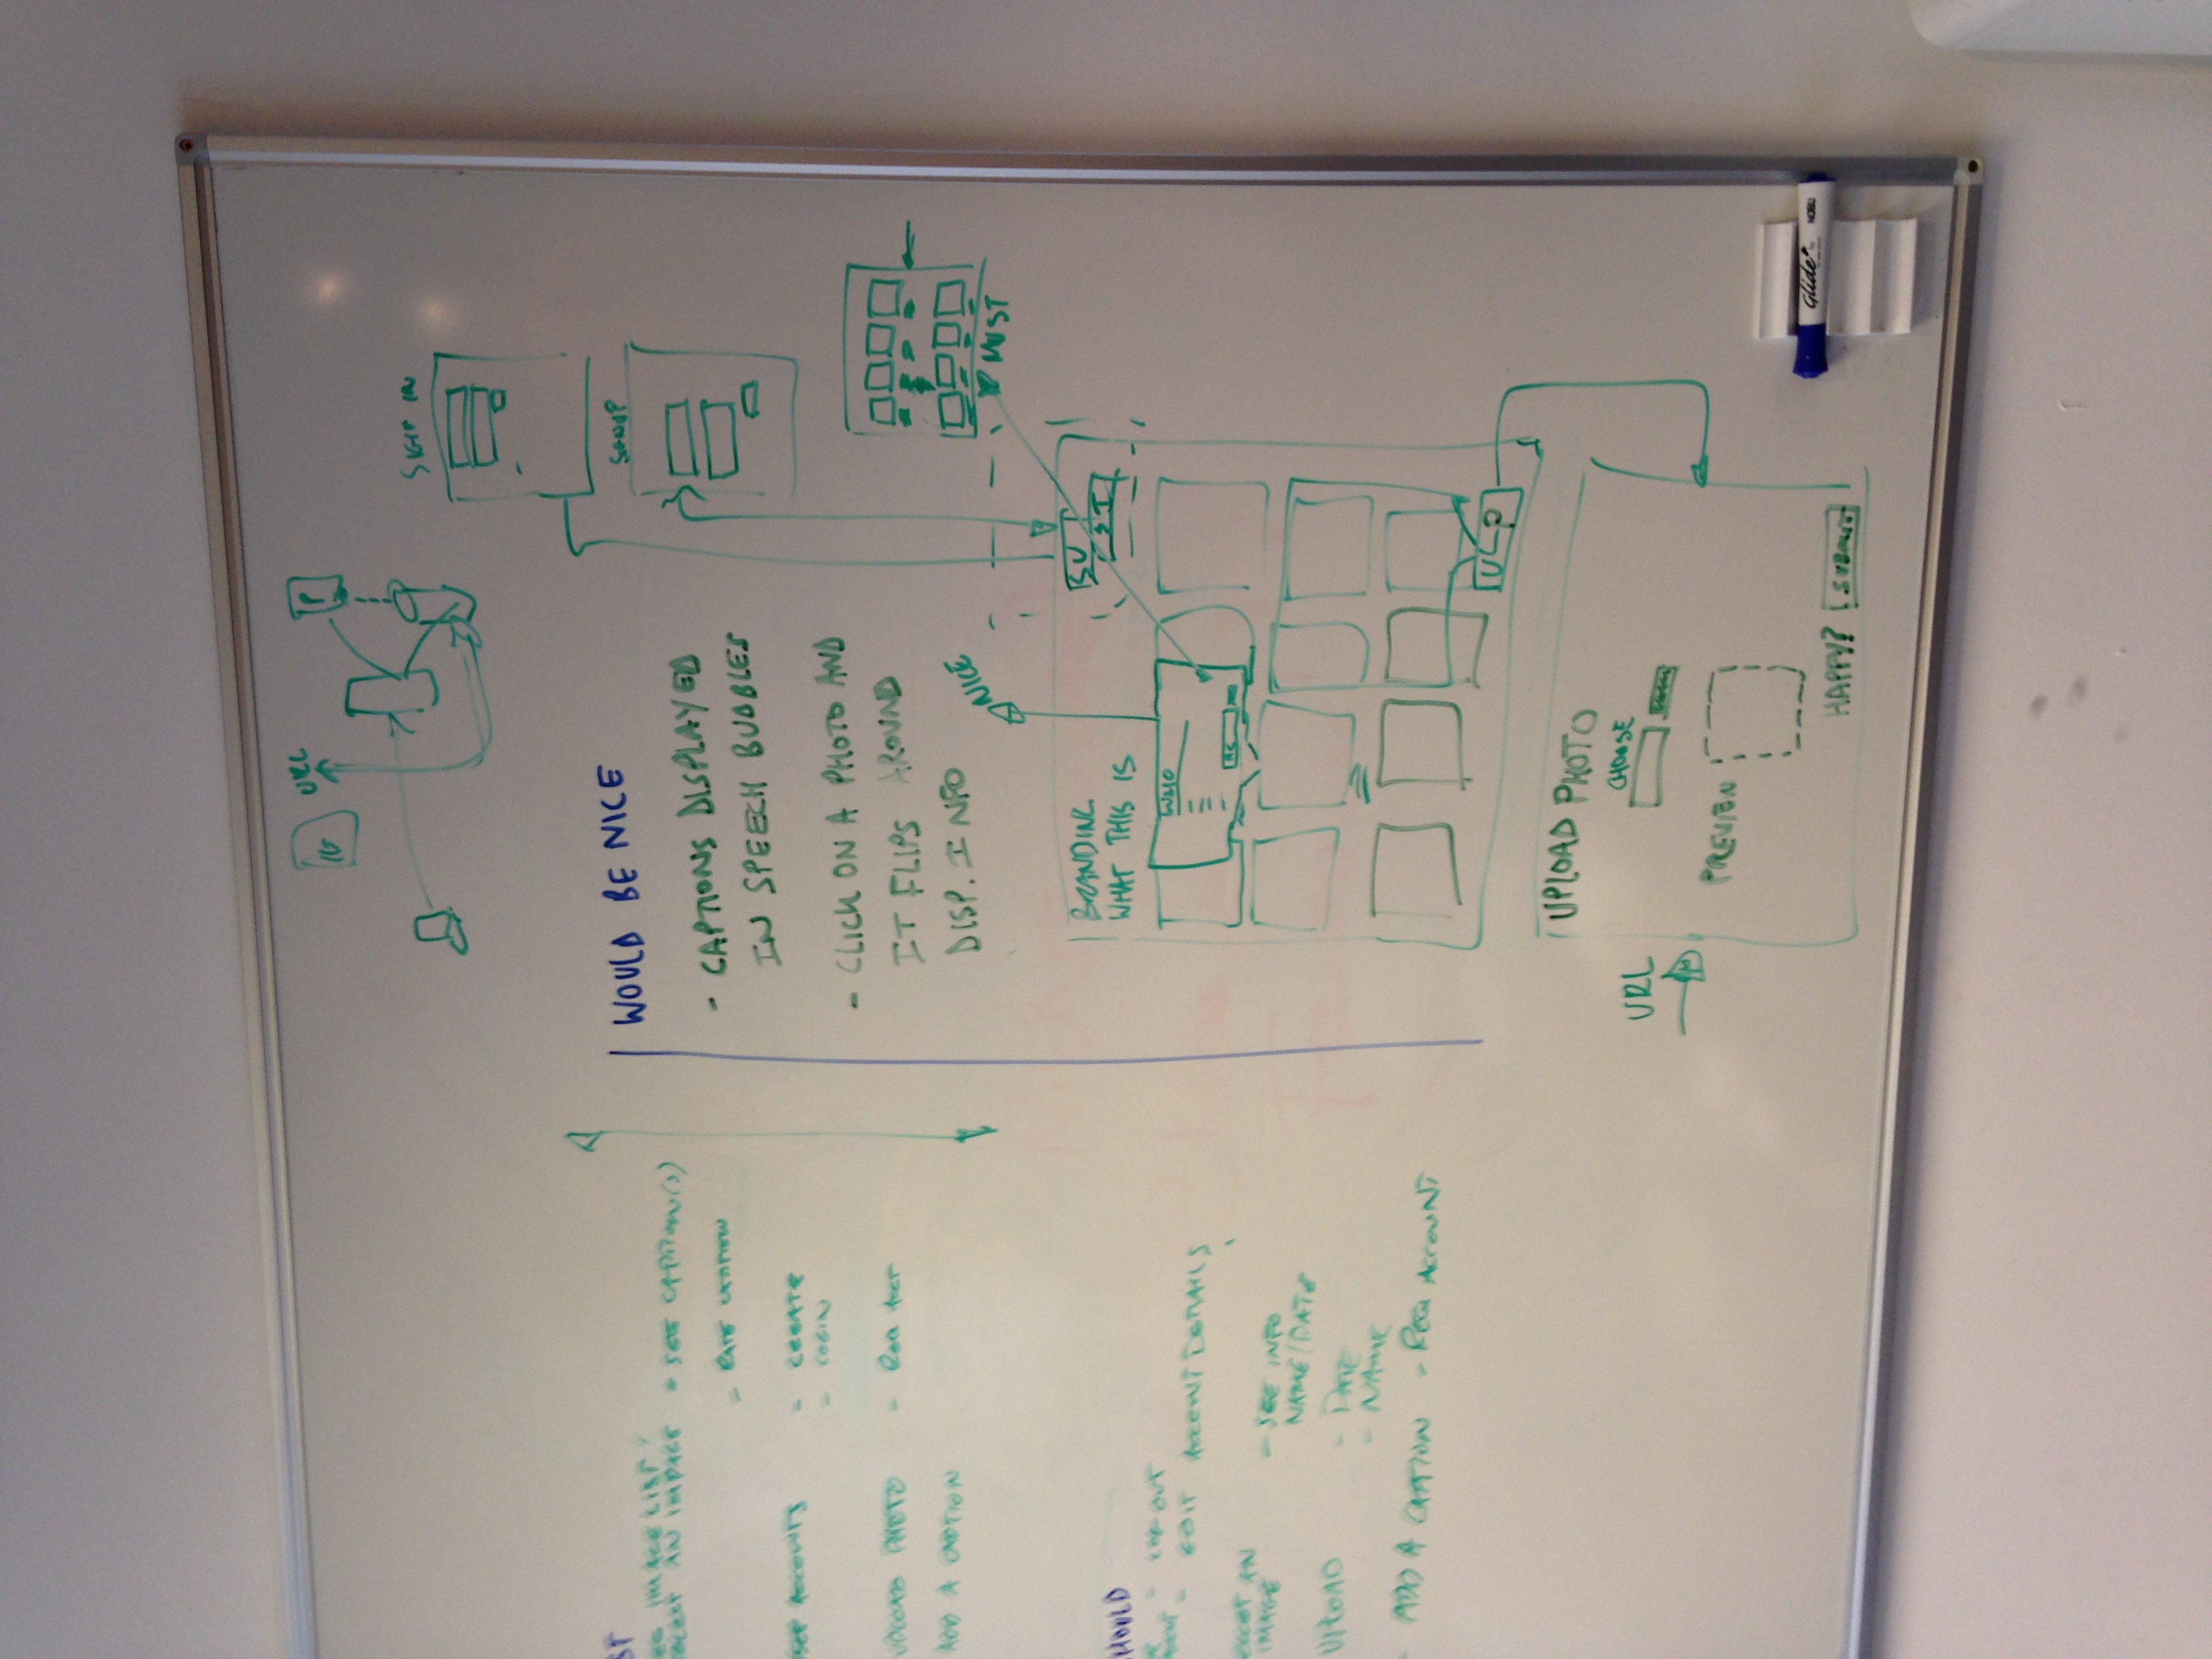 ST
IMAGE LIST
AN IMAGE - SEE CAPTION(S)
- RATE CAPTION
ACCOUNTS - CREATE
- LOGIN
UPLOAD PHOTO - REQ ACCT
ADD A CAPTION
HOULD
- LOG OUT
- EDIT ACCOUNT DETAILS
AN
IMAGE - SEE INFO
NAME/DATE
UPLOAD - DATE
- NAME
- ADD A CAPTION - REQ ACCOUNT
WOULD BE NICE
- CAPTIONS DISPLAYED
IN SPEECH BUBBLES
- CLICK ON A PHOTO AND
IT FLIPS AROUND
DISP. INFO
URL
P
SIGN IN
SIGNUP
MUST
NICE
BRANDING
WHAT THIS IS
SU
SI
ULP
UPLOAD PHOTO
CHOOSE
URL
PREVIEW
HAPPY? SUBMIT
Glide by NOBO